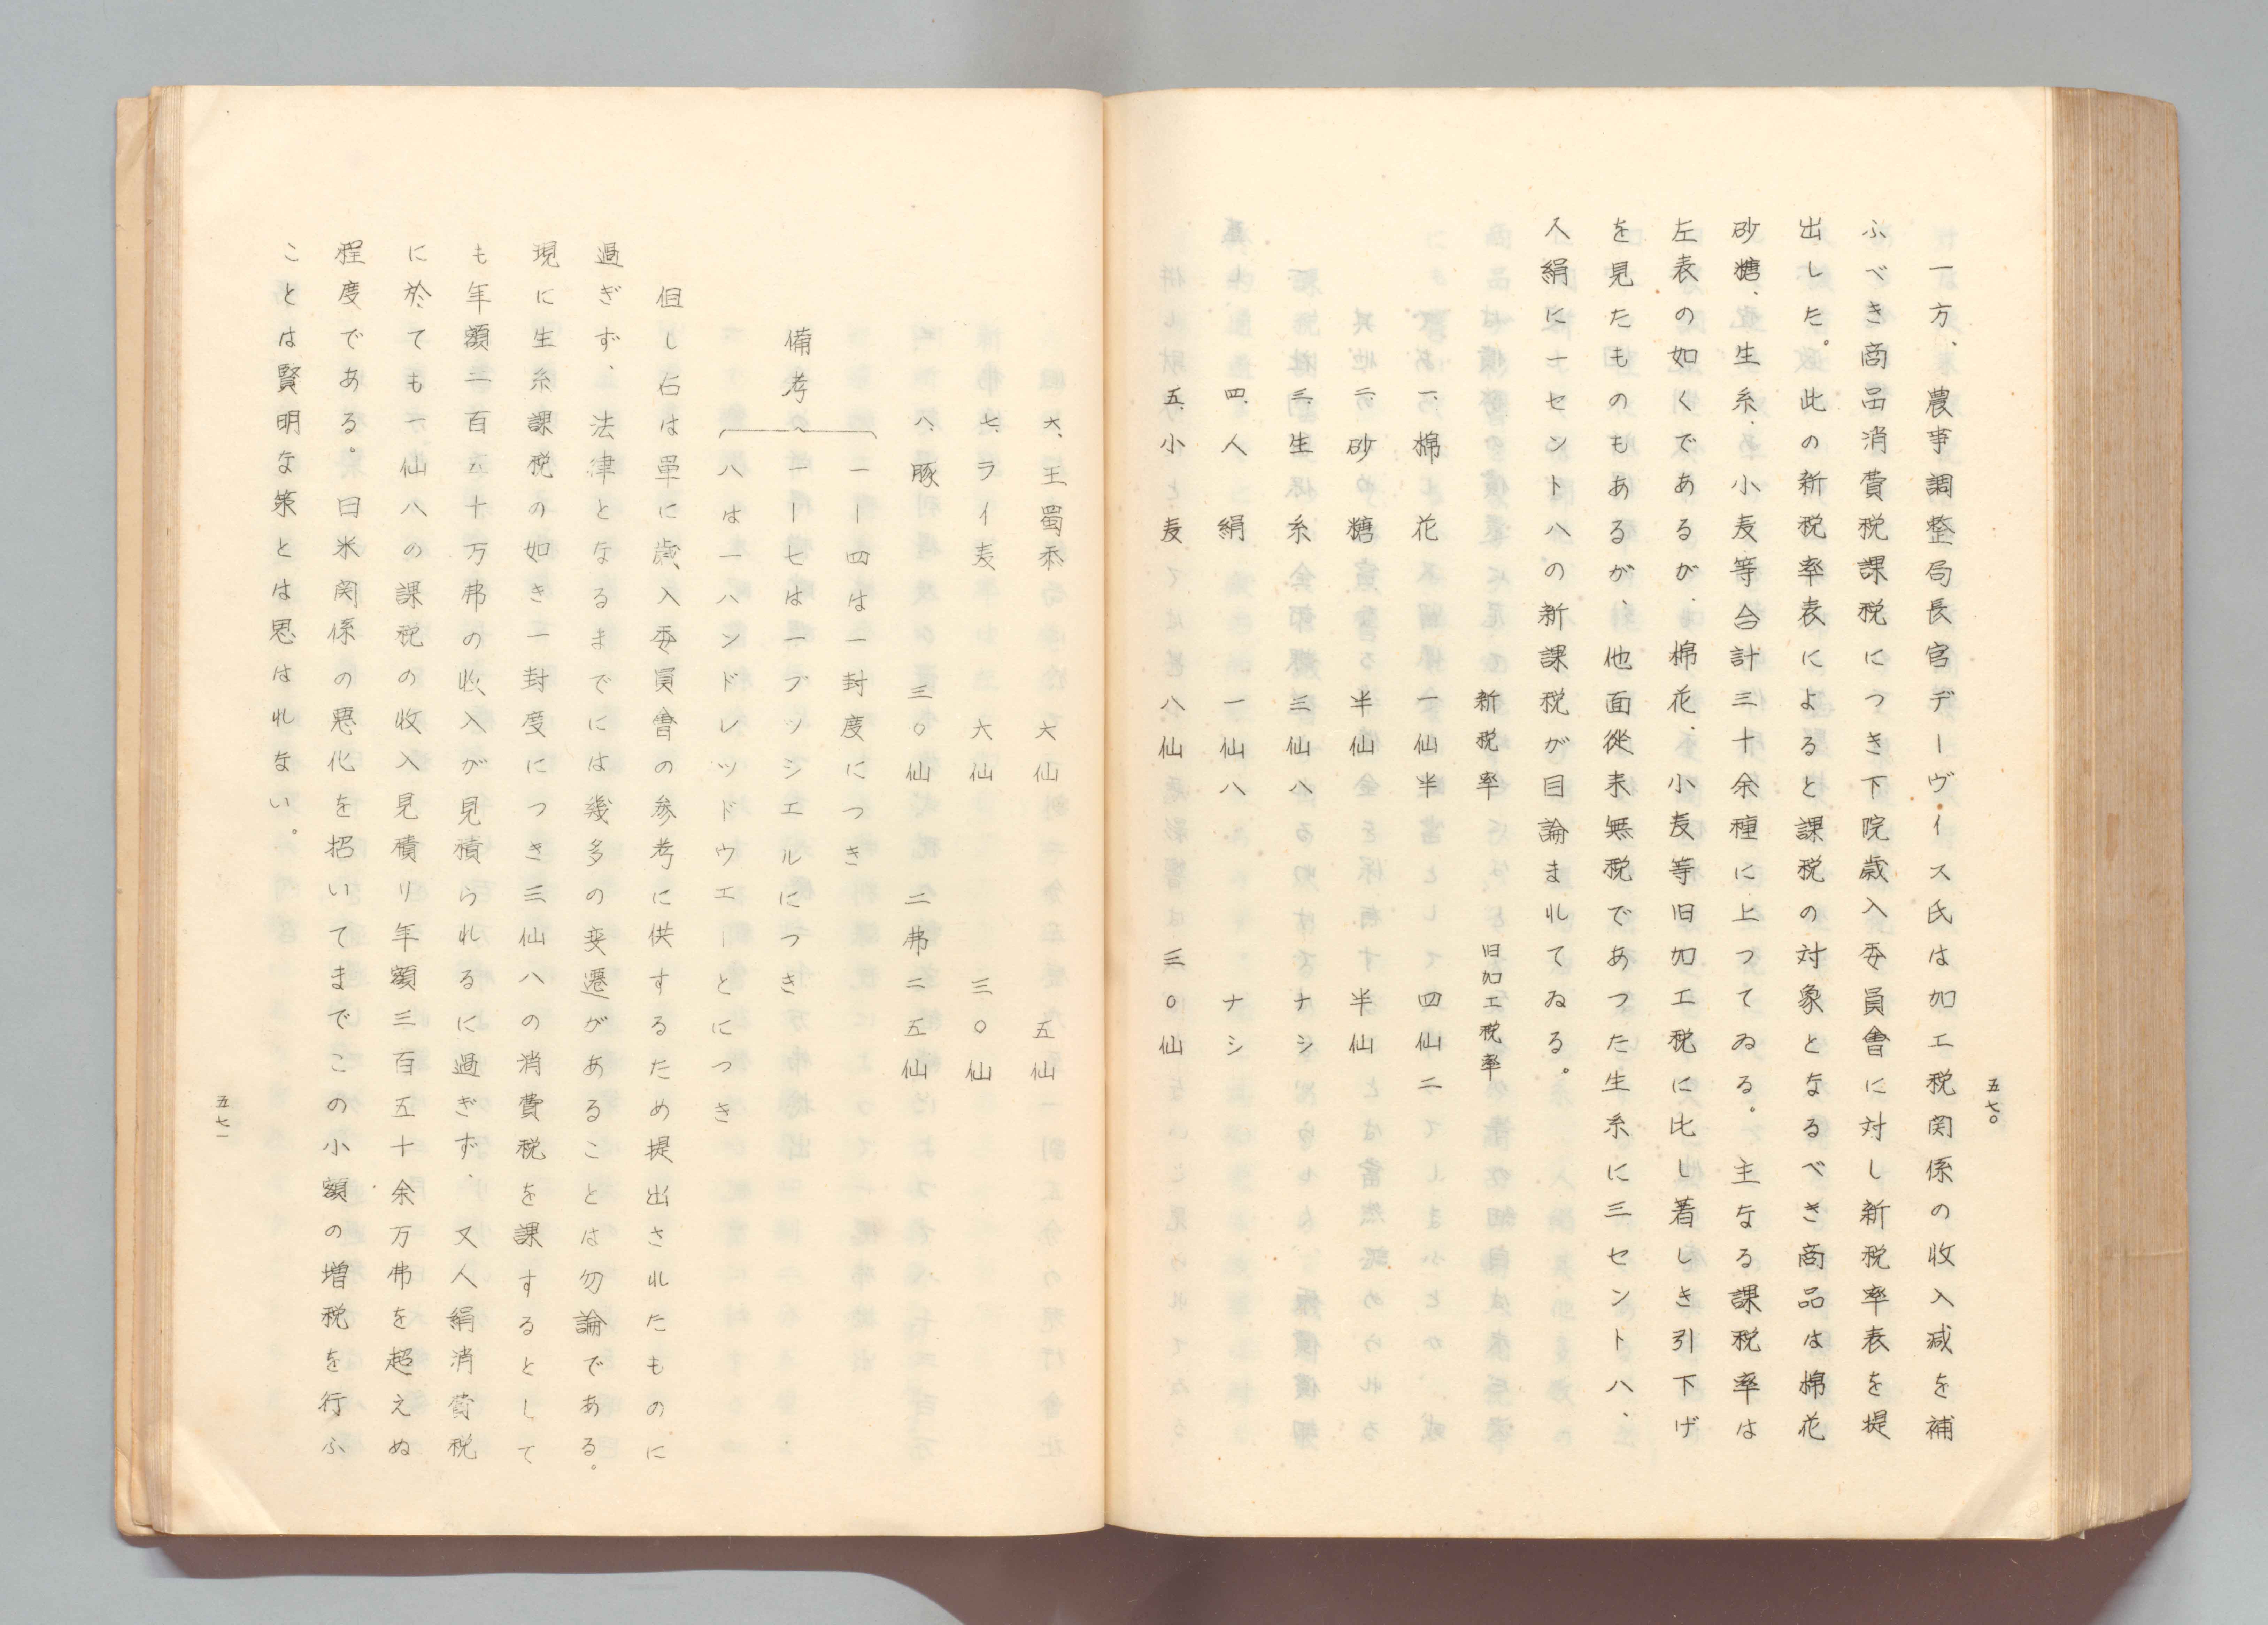 五七〇
一方、農事調整局長官デーヴィス氏は加工税関係の收入減を補
ふべき商品消費税課税につき下院歳入委員會に対し新税率表を提
出した。此の新税率表によると課税の対象となるべき商品は棉花
砂糖、生糸、小麦等合計三十余種に上つてゐる。主なる課税率は
左表の如くであるが、棉花、小麦等旧加工税に比し著しき引下げ
を見たものもあるが、他面從来無税であつた生糸に三セント八、
人絹に一セント八の新課税が目論まれてゐる。
新税率 旧加工税率
一、棉花 一仙半 四仙二
二、砂糖 半仙 半仙
三、生糸 三仙八 ナシ
四、人絹 一仙八 ナシ
五、小麦 八仙 三〇仙
六、玉蜀黍 六仙 五仙
七、ライ麦 六仙 三〇仙
八、豚 三〇仙 二弗二五仙
一ー四は一封度につき
備考 一ー七は一ブツシエルにつき
八は一ハンドレツドウエーとにつき
但し右は単に歳入委員會の参考に供するため提出されたものに
過ぎず、法律となるまでには幾多の変遷があることは勿論である。
現に生糸課税の如き一封度につき三仙八の消費税を課するとして
も年額二百五十万弗の收入が見積られるに過ぎず、又人絹消費税
に於ても一仙八の課税の收入見積リ年額三百五十余万弗を超えぬ
程度である。日米関係の悪化を招いてまでこの小額の増税を行ふ
ことは賢明な策とは思はれない。
五七一